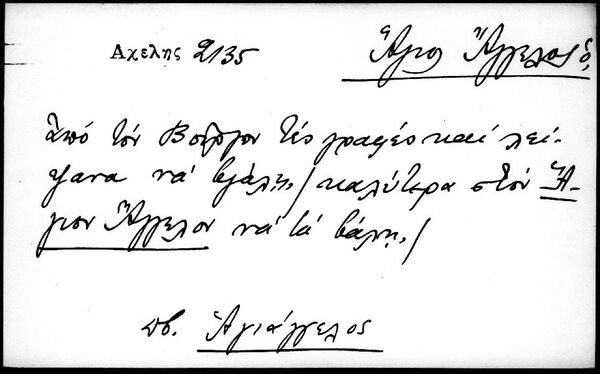 Αχελης 2135
Ἅγιος Ἄγγελος, ὁ
Ἀπό τόν Βοῦργον τές γραφές καί λεί-
ψανα νά βγάλῃ, / καλύτερα στόν Ἅ-
γιον Ἄγγελον νά τά βάλῃ, /
πβ. Ἁγιάγγελος